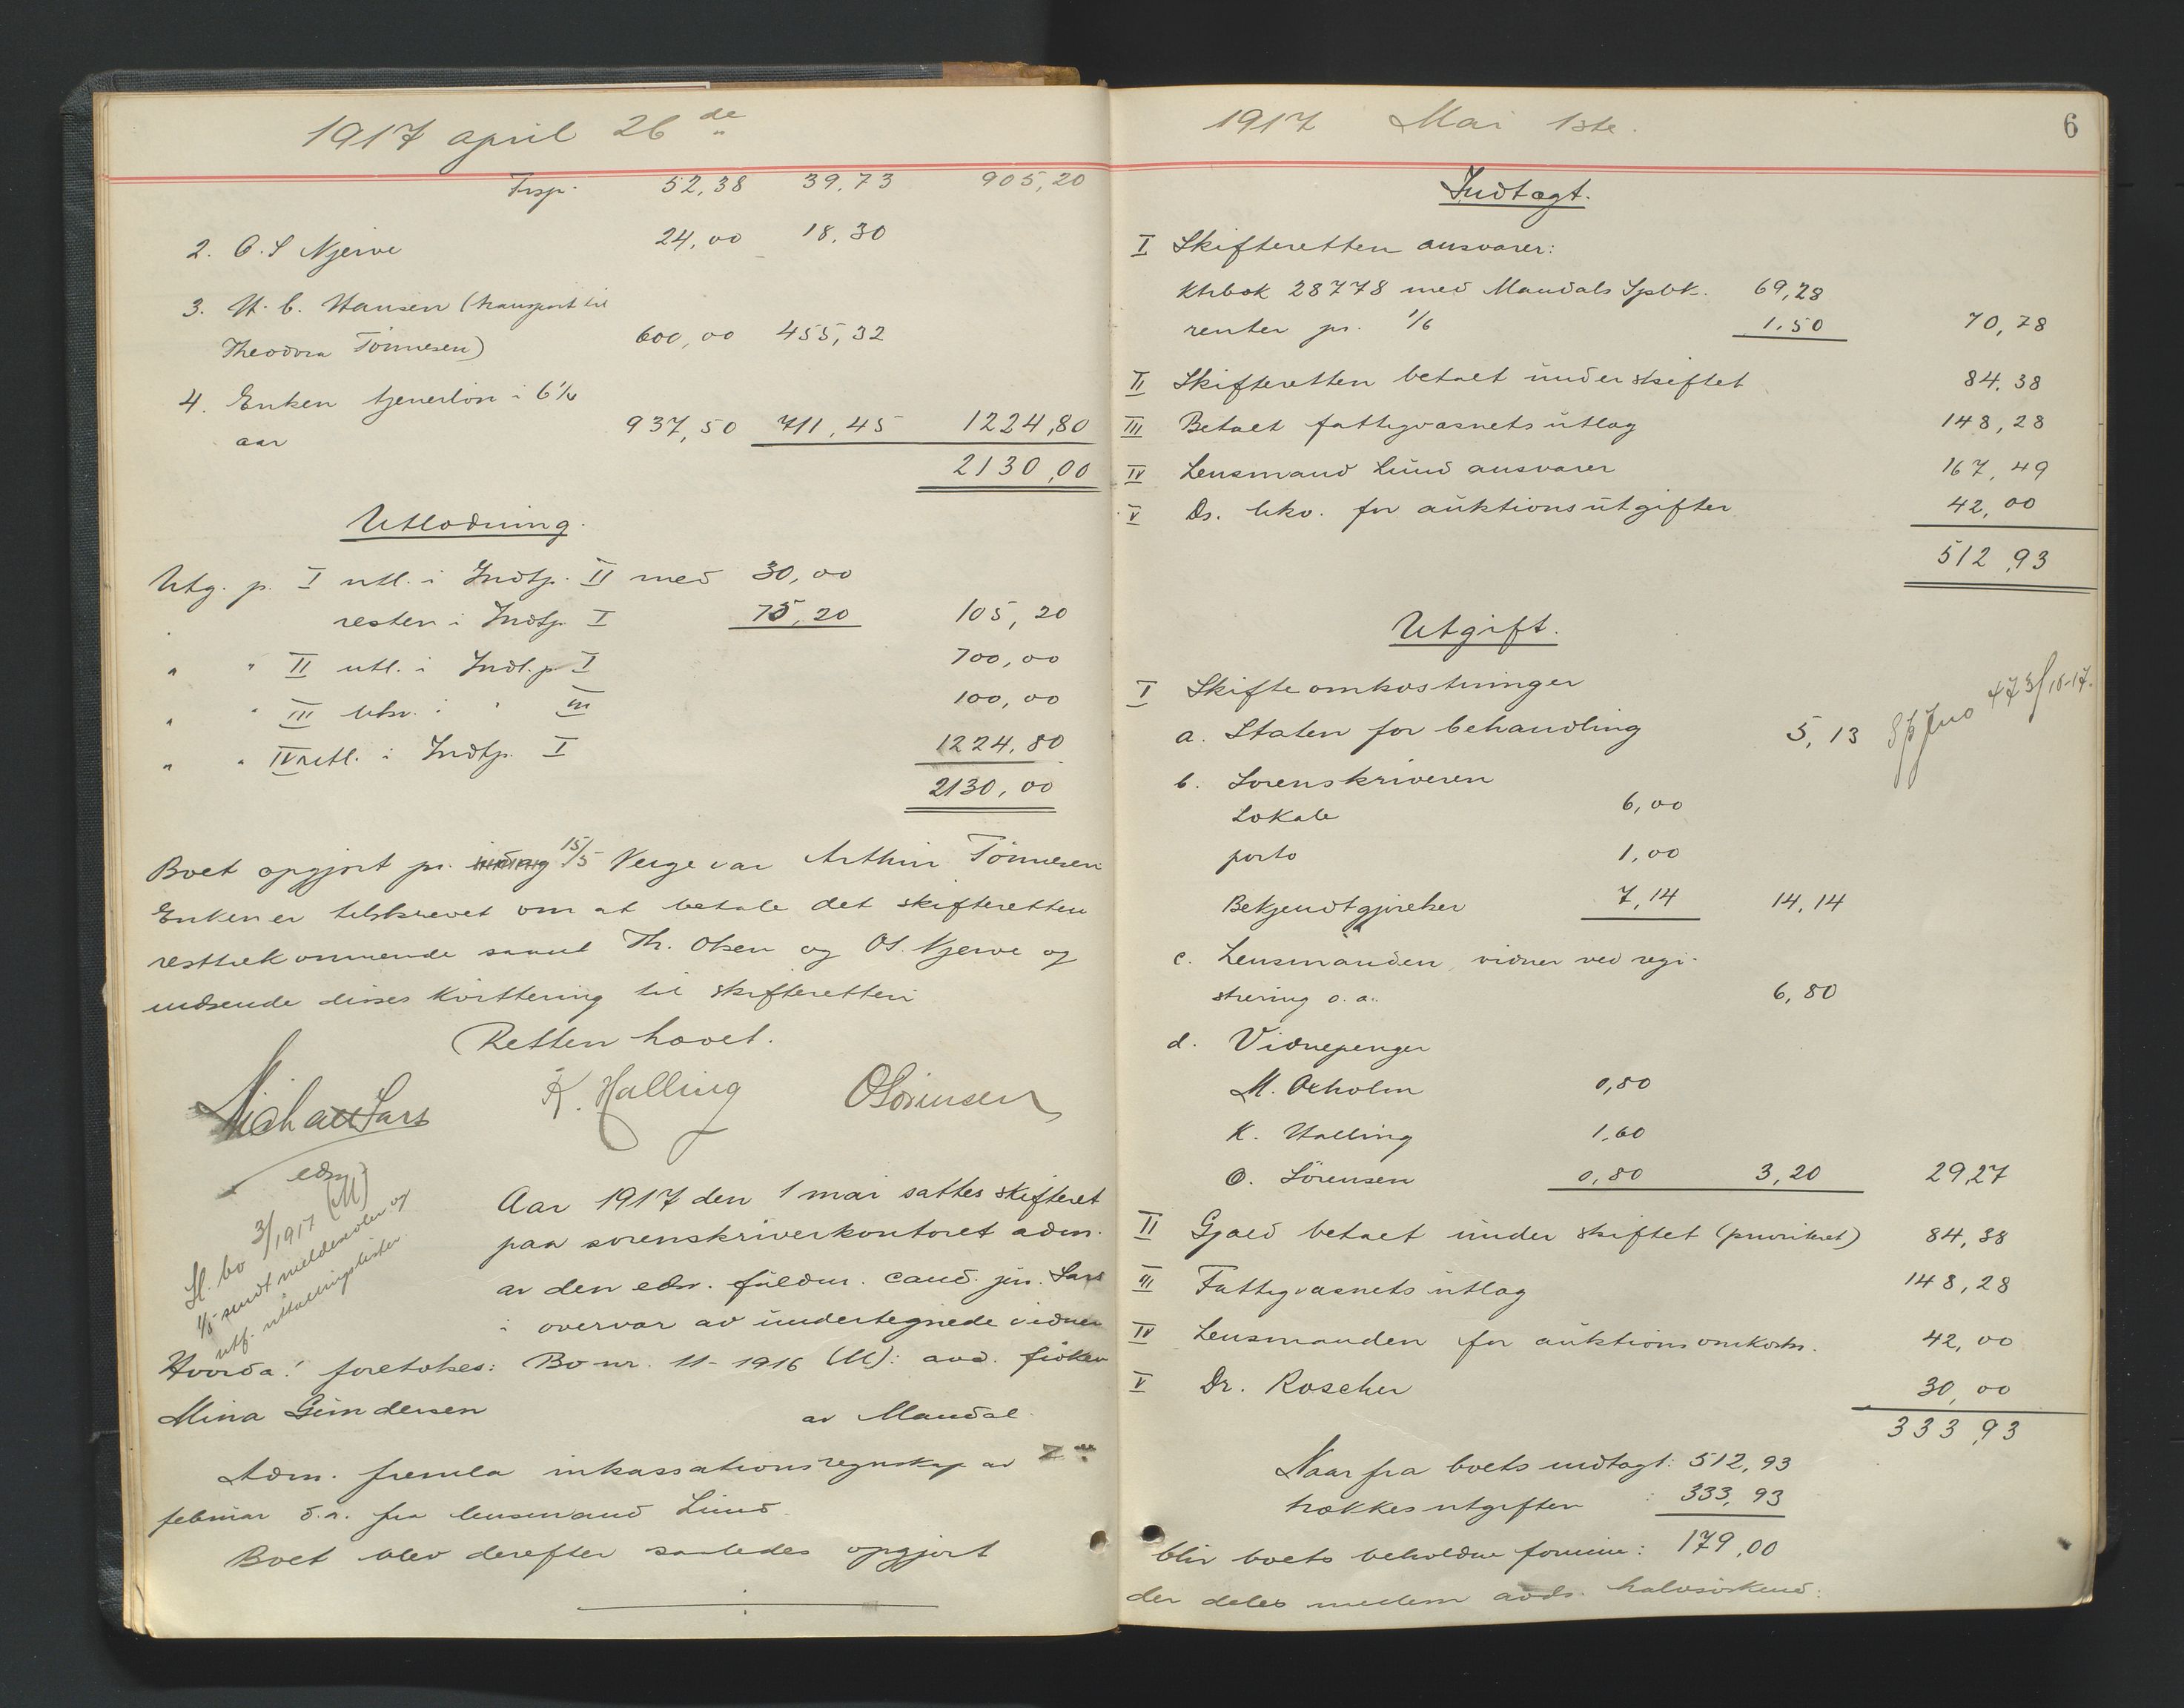 1917 april 26de
Trsp. 52,38 39,73 905,20
2. O. S Njerve 24,00 18,30
3. H. C. Hansen (transport til
Theodora Tönnesen) 600,00 455,32
4. Enken tjenerlön i 6 1/4
aar 937,50 711,45 1224,80
2130,00
Utlodning.
Utg. p. I utl. i Indtp. II med 30,00
resten i Indtp. I 75,20 105,20
" " II utl. i Indt.p. I 700,00
" " III utv. i " III 100,00
" " IV utl. i Indtp. I 1224,80
2130,00
Boet opgjort pr. 15/5 Verge var Arthur Tönnesen
Enken er tilskrevet om at betale det skifteretten
resttilkommende samt Th. Olsen og O S. Njerve og
indsende disses kvittering til skifteretten
Retten hævet.
Michael Sars K. Halling O Sörensen
edsv.
Sl. bo 3/1917 (M)
1/5 sendt meldesedler og
utf. utlodningslister.
Aar 1917 den 1 mai sattes skifteret
paa sorenskriverkontoret adm.
av den edsv. fuldm. cand. jur. Sars
i overvær av undertegnede vidner
Hvorda! foretokes: Bo nr. 11-1916 (M): avd. fröken
Mina Gundersen av Mandal.
Adm. fremla inkassationsregnskap av
februar d.a. fra lensmand Lund.
Boet blev derefter saaledes opgjort
1917 Mai 1ste.
6
Indtægt.
I Skifteretten ansvarer:
Ktrbok 28778 med Mandals Spbk. 69,28
renter pr. 1/6 1.50 70,78
II Skifteretten betalt under skiftet 84,38
III Betalt fattigvæsnets utlæg 148,28
IV Lensmand Lund ansvarer 167,49
V Ds. utv. for auktionsutgifter 42,00
512,93
Utgift.
I Skifteomkostninger
a. Staten for behandling 5,13
473/16-17.
b. Sorenskriveren
Lokale 6,00
porto 1,00
Bekjendtgjörelser 7,14 14,14
c. Lensmanden, vidner ved regi-
strering o. a. 6,80
d. Vidnepenger
M. Oxholm 0,80
K. Halling 1,60
O. Sörensen 0,80 3,20 29,27
II Gjæld betalt under skiftet (prioritert) 84,38
III Fattigvæsnets utlæg 148,28
IV Lensmanden for auktionsomkostn. 42,00
V Dr. Roscher 30,00
333,93
Naar fra boets indtægt: 512,93
trækkes utgiften : 333,93
blir boets beholdne formue: 179,00
der deles mellem avds. halvsöskend: